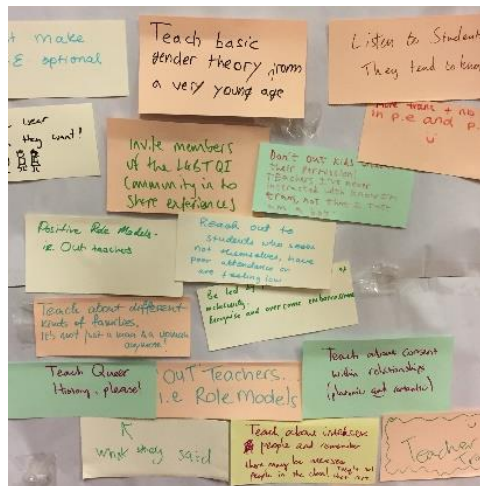 make
optional
Teach basic
gender theory from
a very young age
Listen to Student
They tend to know
wear
they want!
more trans + nb
in p.e and p.
Invite members
of the LGBTQI
Community in to
share experiences
Don't out kids
their permission!
Teachers, I've never
interacted with
not
Positive Role Models.
ie. Out teachers
Reach out to
students who seem
not themselves, have
poor attendance or
are feeling low
Be led by
inclusivity.
Recognise and overcome embarrassment
Teach about different
kinds of families.
It's not just a man & a woman
anymore!
Teach Queer
History, please!
OUT Teachers..
i.e Role Models
Teach about consent
within relationships
(platonic and romantic)
what they said
Teach about intersex
people and remember
there may be intersex
people in the class!
Teacher